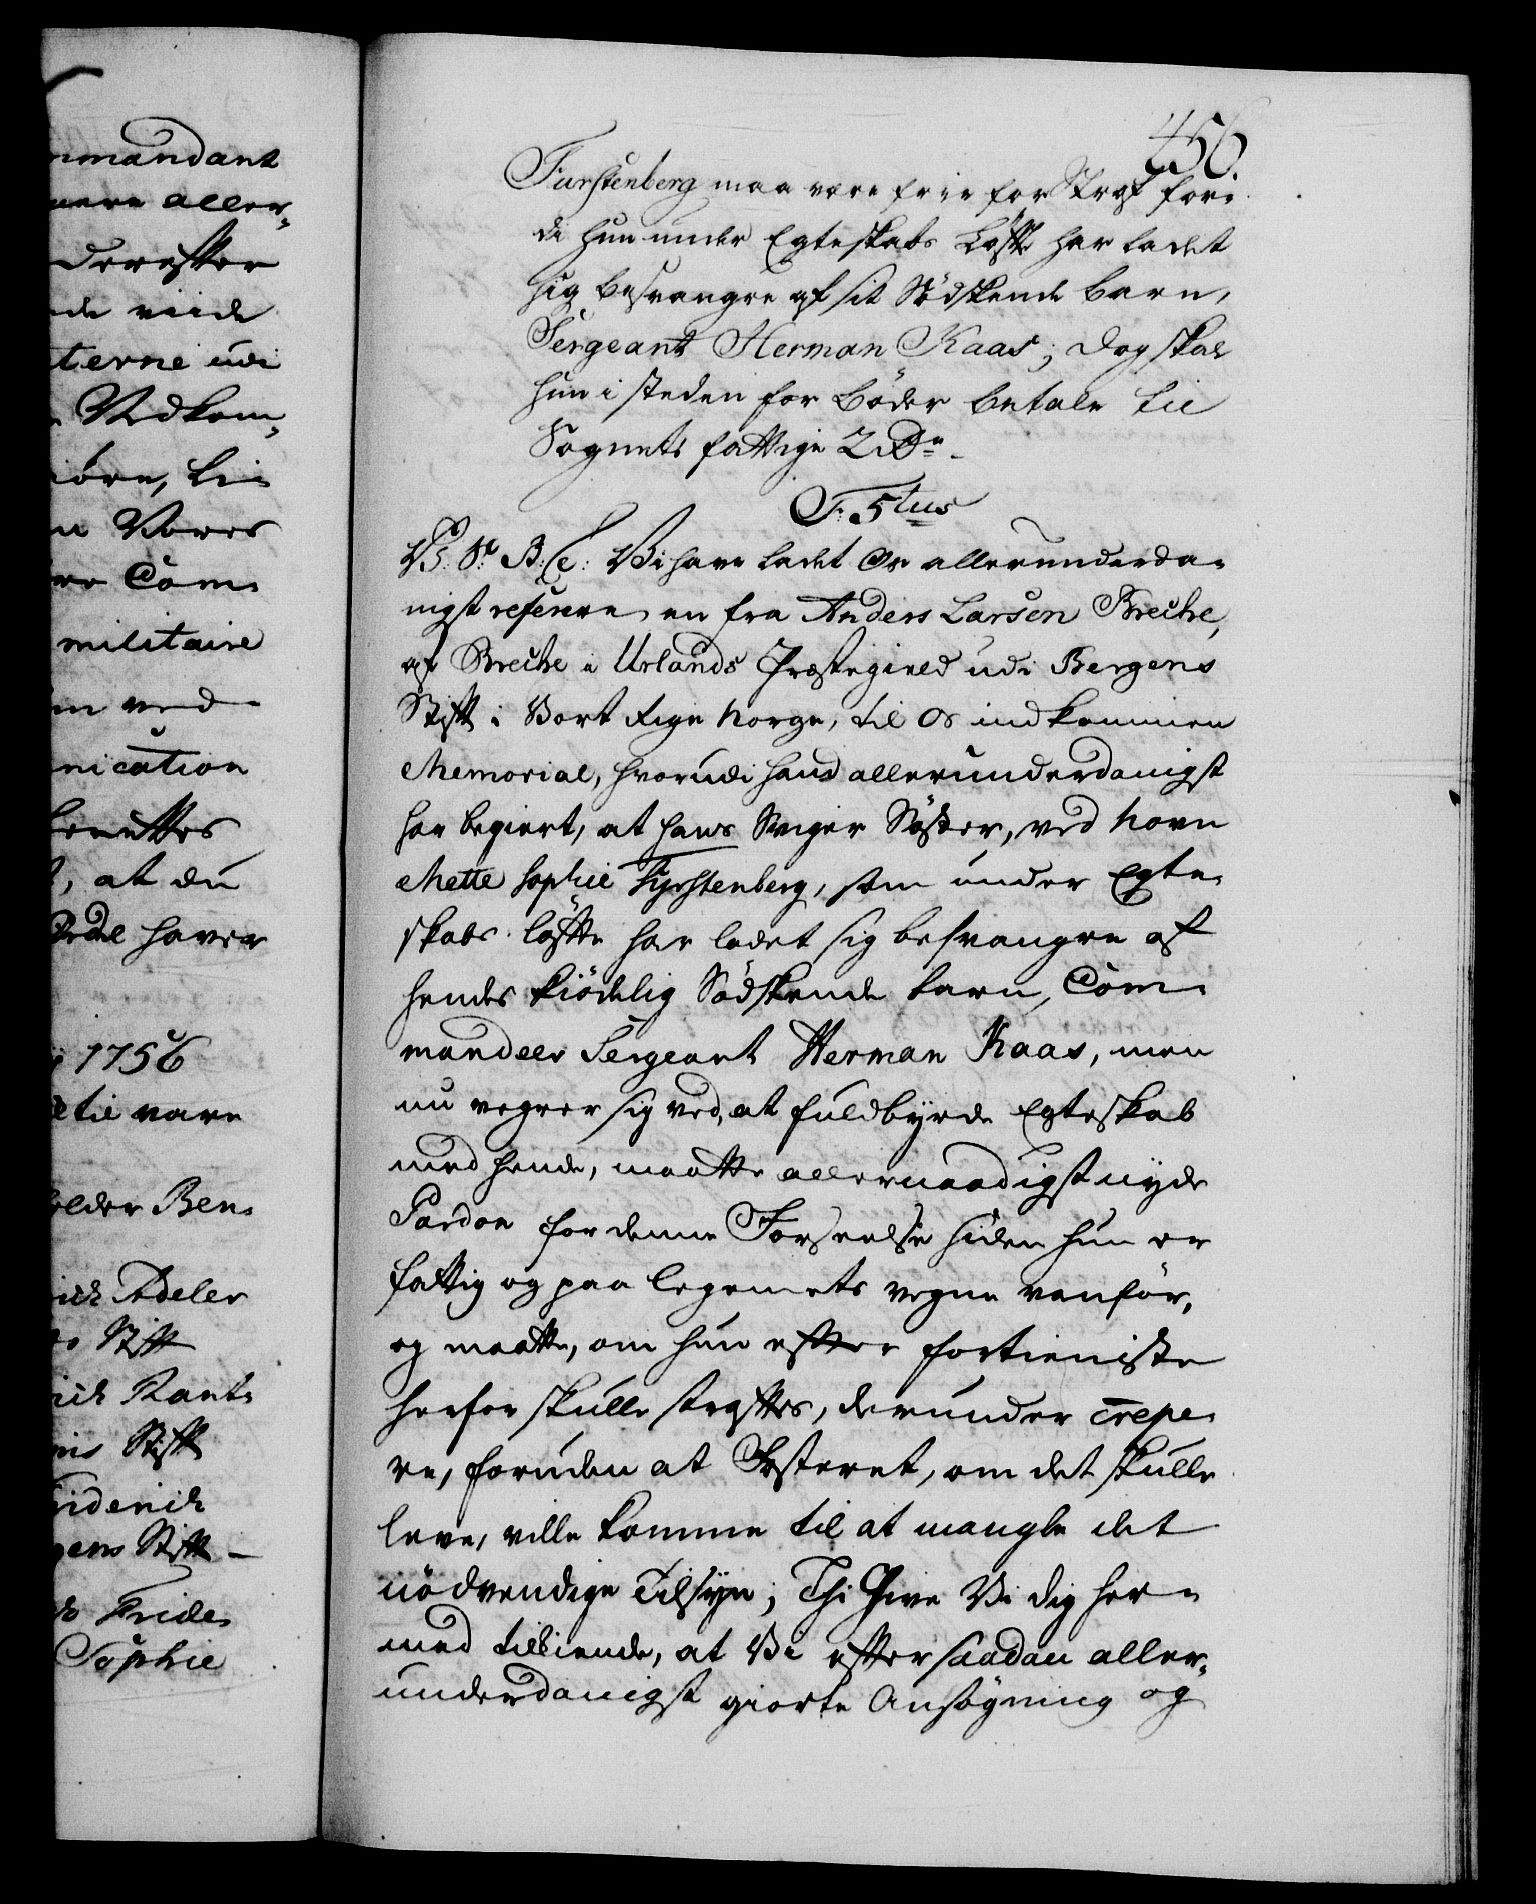 mmandant
mere aller-
derefter
nde viide
terne udi
Vedkom-
giöre, li-
n Vores
Com-
militaire
m ved-
nication
benettes
, at du
havex
1756
til være
older Ben-
ich Adeler
Stift
rich Rant-
Stift
riderich
gens Stift –
Fride-
Sophie
456
Furstenberg maa være frie for Straf fori-
di hun under Egteskabs Löfte har ladet
sig besvangre af sit Södskende barn,
Sergeant Herman Kaas; dog skal
hun i steden for Böder betale til
Sognets fattige 2 Rdr.
F: 5tus
V: S: B: C: Vi have ladet Os allerunderda-
nigst referere en fra Anders Larsen Breche,
af Breche i Urlands Præstegield udi Bergens
Stift i Vort Rige Norge, til Os indkommen
Memorial, hvorudi hand allerunderdanigst
har begiert, at hans Sviger Söster, ved Navn
Mette Sophie Fyrstenberg, som under Egte-
skabs löfte har ladet sig besvangre af
hendes kiödelig Södskende barn, Com-
mandeer Sergeant Herman Kaas, men
nu vegrer sig ved, at fuldbyrde Egteskab
med hende, maatte allernaadigst nyde
Pardon for denne Forseelse siden hun er
fattig og paa legemets vegne vanför,
og maatte, om hun efter fortieniste
herfor skulle straffes, derunder crepe-
re, foruden at Fosteret, om det skulle
leve, ville komme til at mangle det
nödvendige Tilsyn; Thi Give Vi dig her-
med tilkiende, at Vi efter saadan aller-
underdanigst giorte Ansögning og